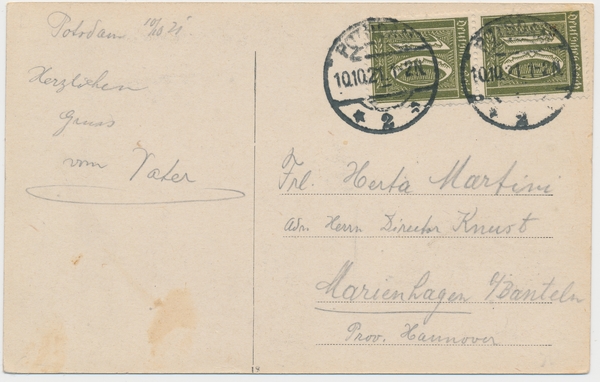 Potsdam 10/10 21.
Herzlichen
Gruss
vom Vater
Deutsches Reich
10.10.21
* 2
10.10.21
* 2
Frl. Herta Martini
adr. Herrn Director Knust
Marienhagen b/Banteln
Prov. Hannover